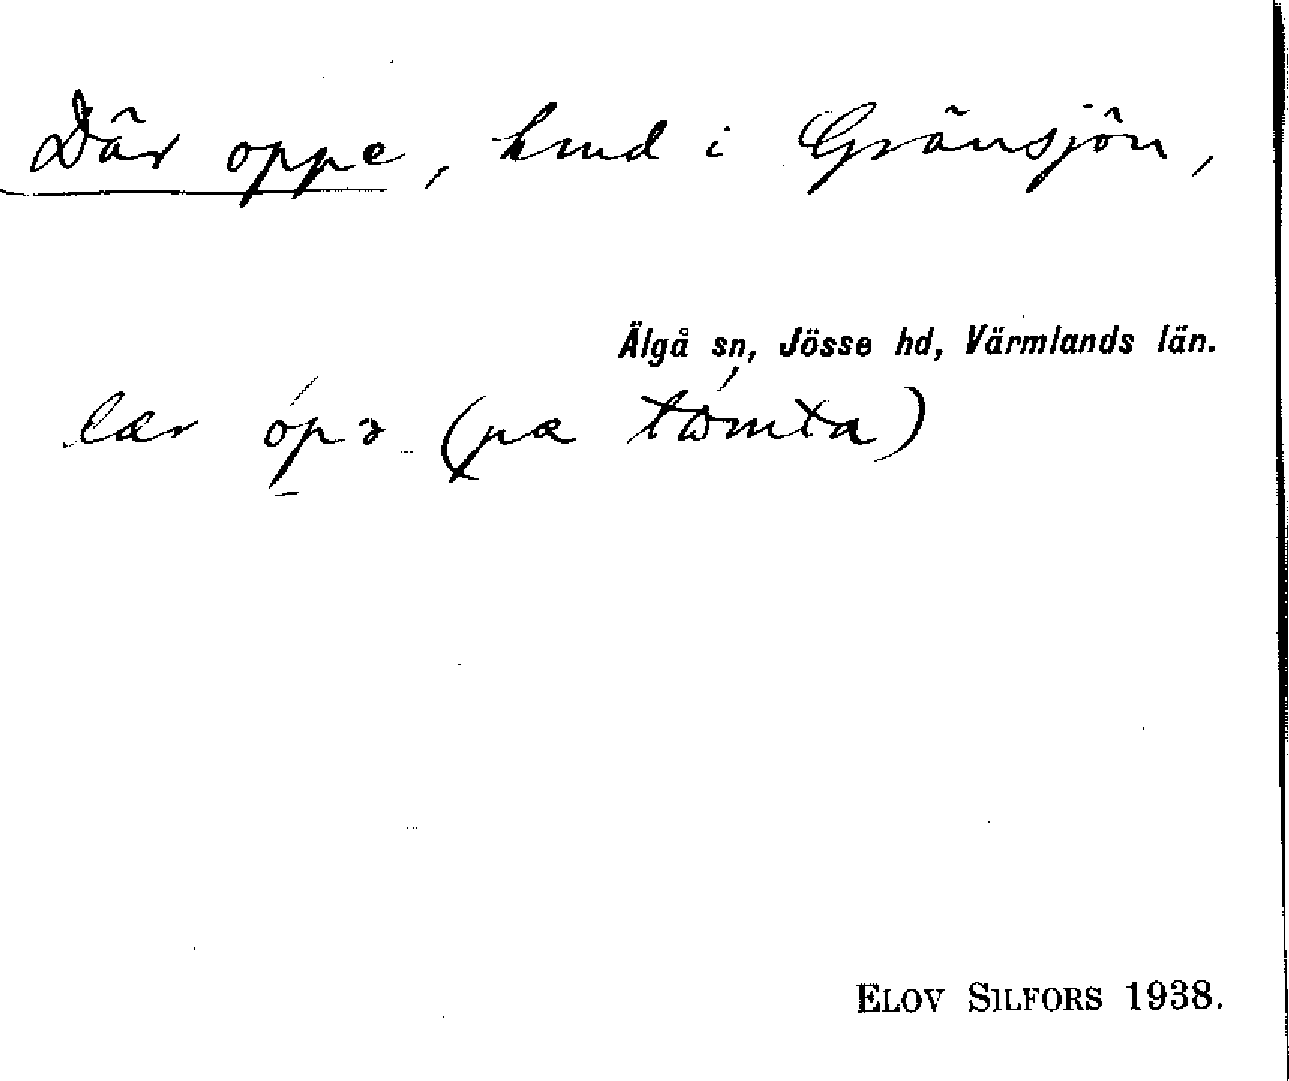 Där oppe, hmd i Gränsjön,
Älgå sn, Jösse hd, Värmlands län.
lær ópə (pæ tómta)
ELOV SILFORS 1938.